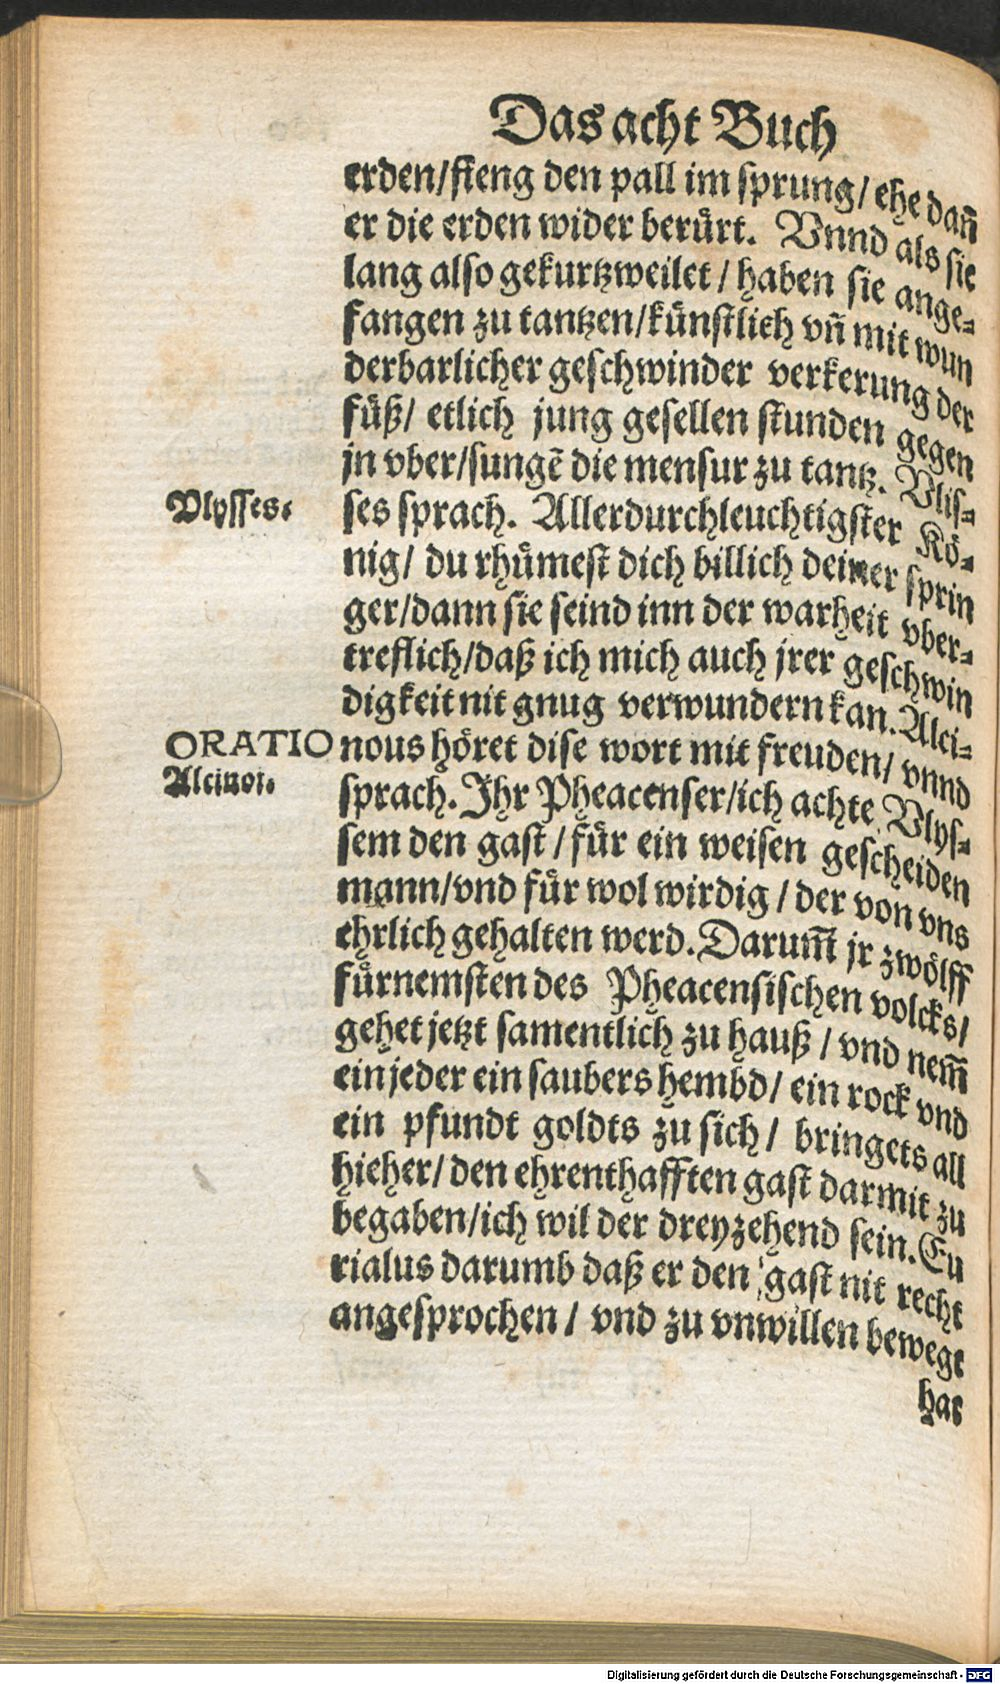 Das acht Buch
erden/fieng den pall im sprung/ ehe dañ
er die erden wider berůrt. Vnnd als sie
lang also gekurtzweilet / haben sie ange-
fangen zu tantzen/kůnstlich vñ mit wun
derbarlicher geschwinder verkerung der
fůß/ etlich jung gesellen stunden gegen
jn vber/sungẽ die mensur zu tantz. Vlis-
Vlysses.
ses sprach. Allerdurchleuchtigster Kö-
nig/ du rhůmest dich billich deiner sprin
ger/dann sie seind inn der warheit vber-
treflich/daß ich mich auch jrer geschwin
digkeit nit gnug verwundern kan. Alci-
ORATIO
Alcinoi.
nous höret dise wort mit freuden/ vnnd
sprach. Ihr Pheacenser/ich achte Vlys-
sem den gast / fůr ein weisen gescheiden
mann/vnd fůr wol wirdig / der von vns
ehrlich gehalten werd. Darum̃ jr zwölff
fůrnemsten des Pheacensischen volcks/
gehet jetzt samentlich zu hauß / vnd nem̃
ein jeder ein saubers hembd/ ein rock vnd
ein pfundt goldts zu sich / bringets all
hieher/ den ehrenthafften gast darmit zu
begaben/ich wil der dreyzehend sein. Eu
rialus darumb daß er den gast nit recht
angesprochen / vnd zu vnwillen bewegt
hat
Digitalisierung gefördert durch die Deutsche Forschungsgemeinschaft - DFG